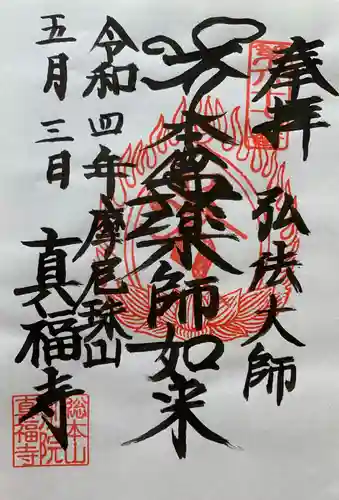 奉拝
弘法大師
本尊薬師如来
令和四年摩尼珠山
五月三日
真福寺
総本山
真福寺